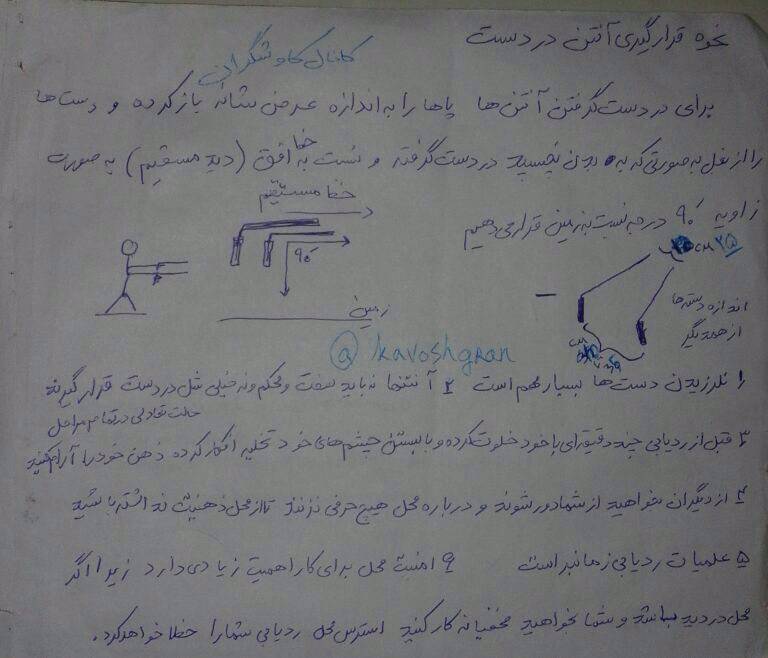 نحوه قرارگیری آنتن در دست
کانال کاوشگران
برای در دست گرفتن آنتن ها پاها را به اندازه عرض شانه باز کرده و دست ها
را از بغل به صورتی که به بدن نچسبد در دست گرفته و نسبت به خط افق (دید مستقیم) به صورت
زاویه ۹۰ درجه نسبت به زمین قرار می دهیم
خط مستقیم
۹۰
زمین
cm ۲۵
اندازه دسته ها
از همدیگر
cm
@kavoshgran
۱ نلرزیدن دست ها بسیار مهم است ۲ آنتنها نه باید سفت و محکم و نه خیلی شل در دست قرار گیرند
حالت تعادلی در تمام مراحل
۳ قبل از ردیابی چند دقیقه ای با خود خلوت کرده و با بستن چشم های خود تخلیه افکار کرده ذهن خود را آرام کنید
۴ از دیگران بخواهید از شما دور شوند و درباره محل هیچ حرفی نزنند تا از محل ذهنیت نداشته باشید
۵ علمیات ردیابی زمانبر است ۶ امنیت محل برای کار اهمیت زیادی دارد زیرا اگر
محل در دید باشد و شما بخواهید مخفیانه کار کنید استرس محل ردیابی شما را خطا خواهد کرد.